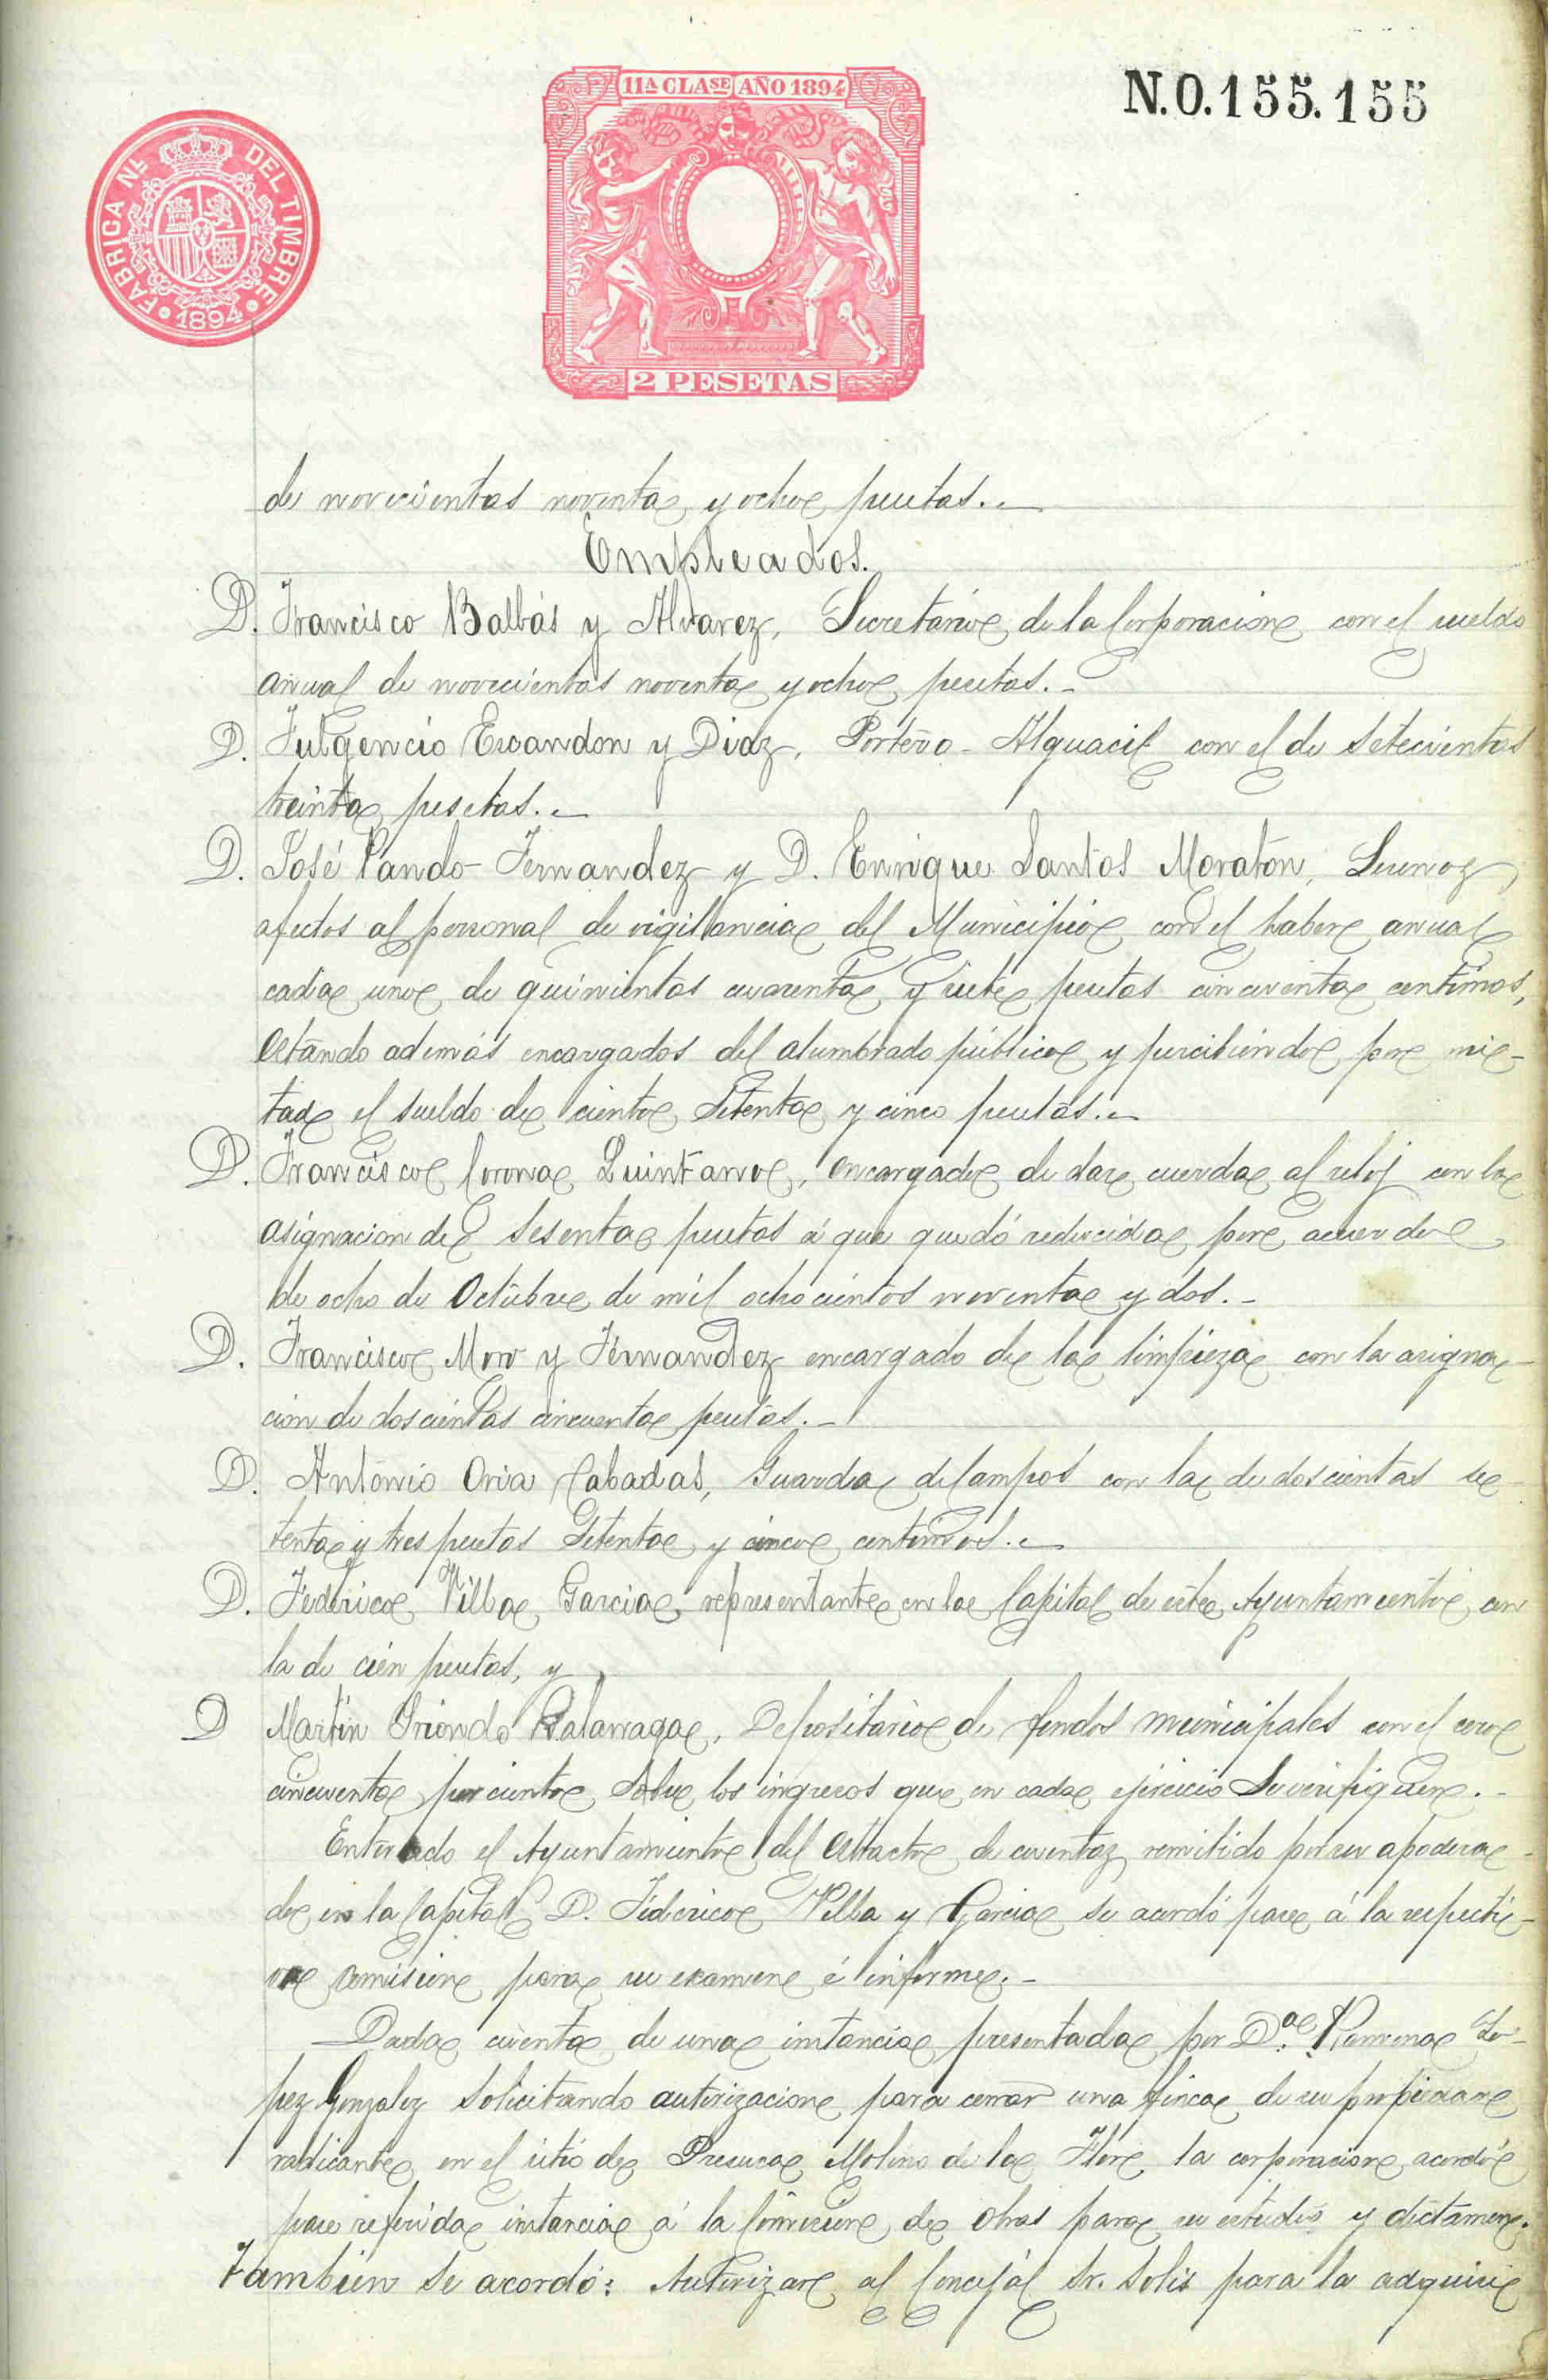 11ª CLASE AÑO 1894
N.0.155.155
FABRICA NL. DEL TIMBRE
1894
2 PESETAS
de novecientas noventa y ocho pesetas.-
Empleados.
D. Francisco Balbás y Alvarez, Secretario de la Corporacion con el sueldo
anual de novecientas noventa y ocho pesetas.-
D. Fulgencio Escandon y Diaz, Portero-Alguacil con el de setecientas
treinta pesetas.-
D. José Pando Fernandez y D. Enrique Santos Moratón, Serenos
afectos al personal de vigilancia del Municipio con el haber anual
cada uno de quinientas cuarenta y siete pesetas cincuenta centimos,
estando además encargados del alumbrado público y percibiendo por mi-
tad el sueldo de ciento setenta y cinco pesetas.-
D. Francisco Corona Quintano, encargado de dar cuerda al reloj con la
asignacion de sesenta pesetas á que quedó reducida por acuerdo
de ocho de Octubre de mil ochocientos noventa y dos.-
D. Francisco Moro y Fernandez encargado de la limpieza con la asigna-
cion de doscientas cincuenta pesetas.-
D. Antonio Oria Cabadas, Guarda de Campos con la de doscientas se-
tenta y tres pesetas setenta y cinco centimos.-
D. Federico Villa Garcia representante en la Capital de este Ayuntamiento con
la de cien pesetas, y
D Martin Oriondo, Depositario de fondos municipales con el cero
cincuenta por ciento sobre los ingresos que en cada ejercicio se verifiquen.-
Enterado el Ayuntamiento del extracto de cuentas remitido por su apodera-
do en la Capital D. Federico Villa y Garcia se acordó pase á la respecti-
va comision para su examen é informe.-
Dada cuenta de una instancia presentada por D.ª Ramona Lo-
pez Gonzalez solicitando autorizacion para cerrar una finca de su propiedad
radicante en el sitio de Molino de la Flor la corporacion acordó
pase referida instancia á la Comision de obras para su estudio y dictamen.
Tambien se acordó: Autorizar al Concejal Sr. Solis para la adquisi